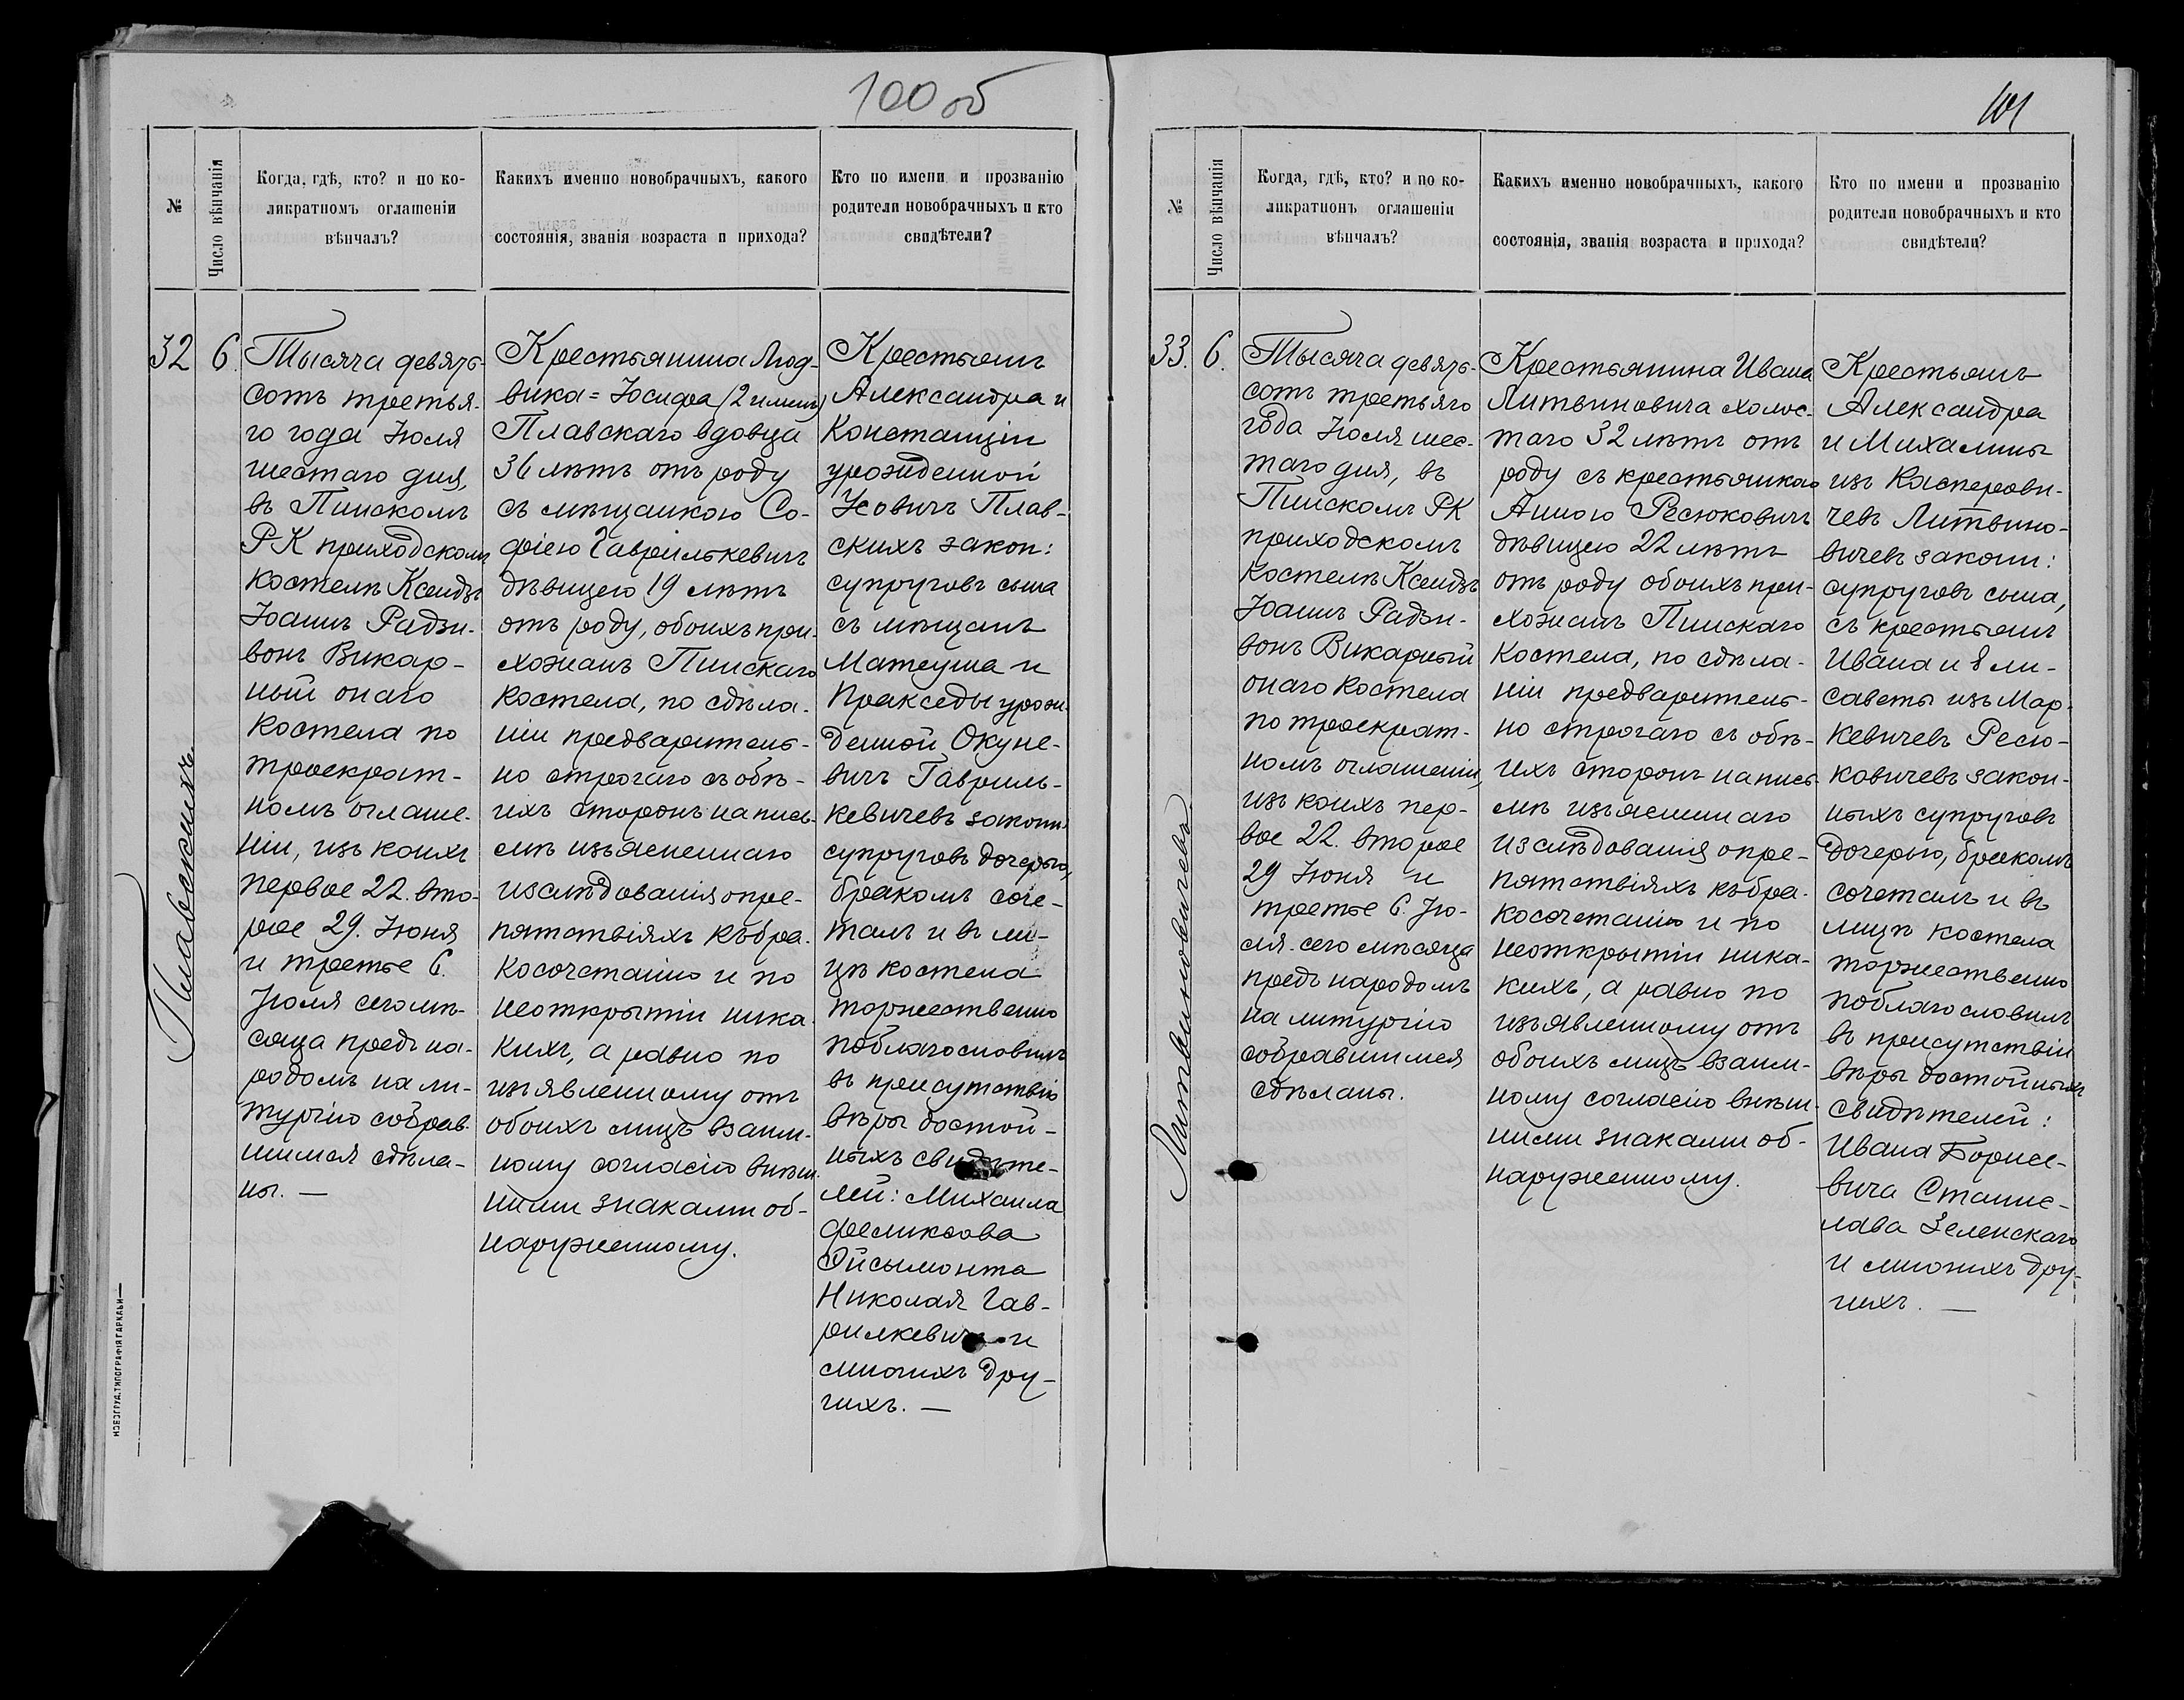 100 об
№
Число вѣнчанія
Когда, гдѣ, кто? и по ко-
ликратномъ оглашеніи
вѣнчалъ?
Какихъ именно новобрачныхъ, какого
состоянія, званія возраста и прихода?
Кто по имени и прозванію
родители новобрачныхъ и кто
свидѣтели?
32
6.
Плавскихъ
Тысяча девять-
сотъ третья-
го года Іюля
шестаго дня,
въ Пинскомъ
РК приходскомъ
костелѣ Ксендзъ
Іоаннъ Радзи-
вонъ Викар-
ный онаго
костела по
троекрат-
номъ оглаше-
ніи, изъ коихъ
первое 22. вто-
рое 29. Іюня
и третье 6.
Іюля сего мѣ-
сяца предъ на-
родомъ на ли-
тургію собрав-
шимся сдѣла-
ны. —
Крестьянина Люд-
вика=Іосифа (2 именъ)
Плавскаго вдовца
36 лѣтъ отъ роду
съ мѣщанкою Со-
фіею Гаврилькевичъ
дѣвицею 19 лѣтъ
отъ роду, обоихъ при-
хожанъ Пинскаго
костела, по сдѣла-
ніи предваритель-
но строгаго съ обѣ-
ихъ сторонъ на пись-
мѣ изъясненнаго
изслѣдованія о пре-
пятствіяхъ къ бра-
косочетанію и по
неоткрытіи ника-
кихъ, а равно по
изъявленному отъ
обоихъ лицъ взаим-
ному согласію внѣш-
ними знаками об-
наруженному.
Крестьянъ
Александра и
Констанціи
урожденной
Усовичъ Плав-
скихъ закон:
супруговъ сына
съ мѣщанъ
Матеуша и
Пракседы урож-
денной Окуне-
вичъ Гавриль-
кевичевъ законн:
супруговъ дочерью,
бракомъ соче-
талъ и въ ли-
цѣ костела
торжественно
поблагословилъ
въ присутствіи
вѣры достой-
ныхъ свидѣте-
лей: Михаила
Феликсова
Ойсымонта
Николая Гав-
рилкевича и
многихъ дру-
гихъ. —
НОВОГРУД. ТИПОГРАФІЯ ГАРКАВИ
101
№
Число вѣнчанія
Когда, гдѣ, кто? и по ко-
ликратномъ оглашеніи
вѣнчалъ?
Какихъ именно новобрачныхъ, какого
состоянія, званія возраста и прихода?
Кто по имени и прозванію
родители новобрачныхъ и кто
свидѣтели?
33.
6.
Литвиновичева
Тысяча девять-
сотъ третьяго
года Іюля шес-
таго дня, въ
Пинскомъ РК
приходскомъ
костелѣ Ксендзъ
Іоаннъ Радзи-
вонъ Викарный
онаго костела
по троекрат-
номъ оглашеніи,
изъ коихъ пер-
вое 22. второе
29 Іюня и
третье 6. Ію-
ля сего мѣсяца
предъ народомъ
на литургію
собравшимся
сдѣланы.
Крестьянина Ивана
Литвиновича холос-
таго 32 лѣтъ отъ
роду съ крестьянкою
Анною Ресюковичъ
дѣвицею 22 лѣтъ
отъ роду обоихъ при-
хожанъ Пинскаго
костела, по сдѣла-
ніи предваритель-
но строгаго съ обѣ-
ихъ сторонъ на пись-
мѣ изъясненнаго
изслѣдованія о пре-
пятствіяхъ къ бра-
косочетанію и по
неоткрытіи ника-
кихъ, а равно по
изъявленному отъ
обоихъ лицъ взаим-
ному согласію внѣш-
ними знаками об-
наруженному.
Крестьянъ
Александра
и Михалины
изъ Касперови-
чевъ Литвино-
вичевъ законн:
супруговъ сына,
съ крестьянъ
Ивана и Ели-
саветы изъ Мар-
кевичевъ Ресю-
ковичевъ закон-
ныхъ супруговъ
дочерью, бракомъ
сочеталъ и въ
лицѣ костела
торжественно
поблагословилъ
въ присутствіи
вѣры достойныхъ
свидѣтелей:
Ивана Борисе-
вича Станис-
лава Зеленскаго
и многихъ дру-
гихъ. —